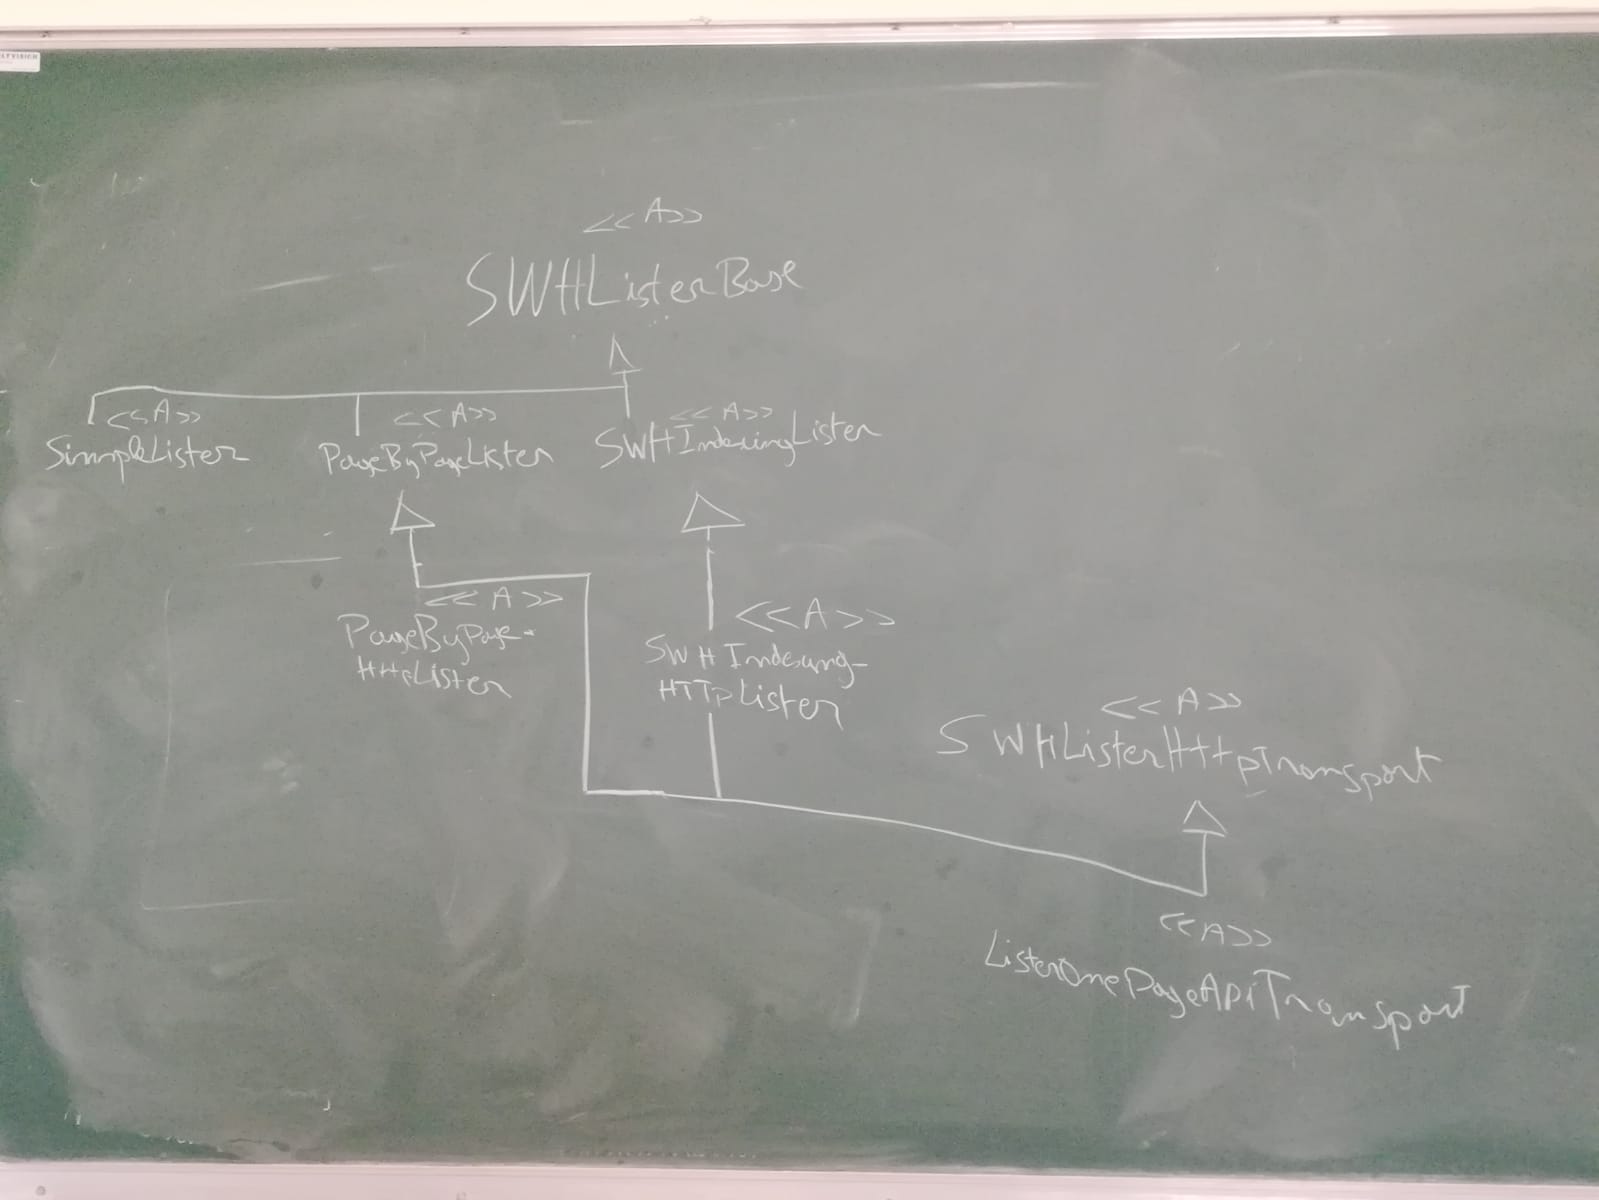 <<A>>
SWHListerBase
<<A>>
SimpleLister
<<A>>
PageByPageLister
<<A>>
SWHIndexingLister
<<A>>
PageByPage-
HttpLister
<<A>>
SWHIndexing-
HTTPLister
<<A>>
SWHListerHttpTransport
<<A>>
ListerOnePageApiTransport